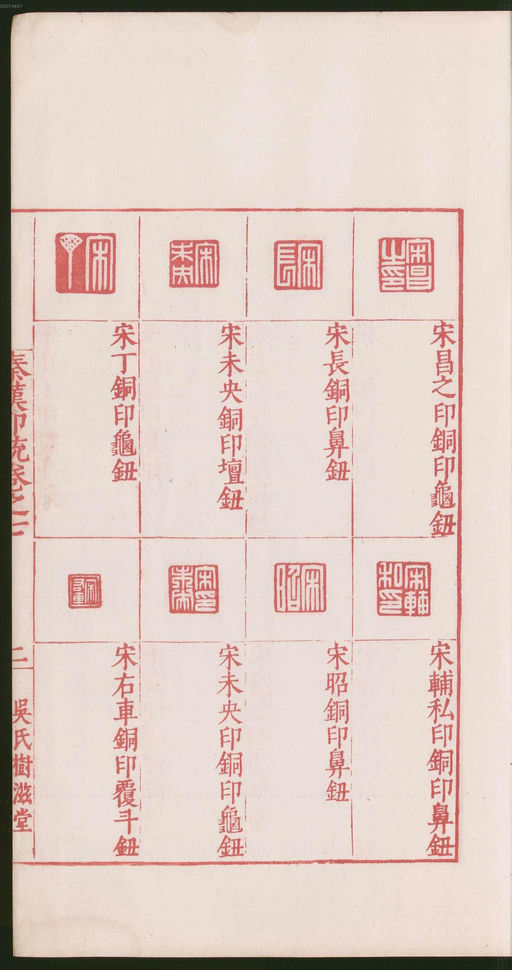 00073467
宋昌之印銅印龜鈕
宋長銅印鼻鈕
宋未央銅印壇鈕
宋丁銅印龜鈕
宋輔私印銅印鼻鈕
宋昭銅印鼻鈕
宋未央印銅印龜鈕
宋右車銅印覆斗鈕
秦漢印統卷之七
二
吳氏樹滋堂